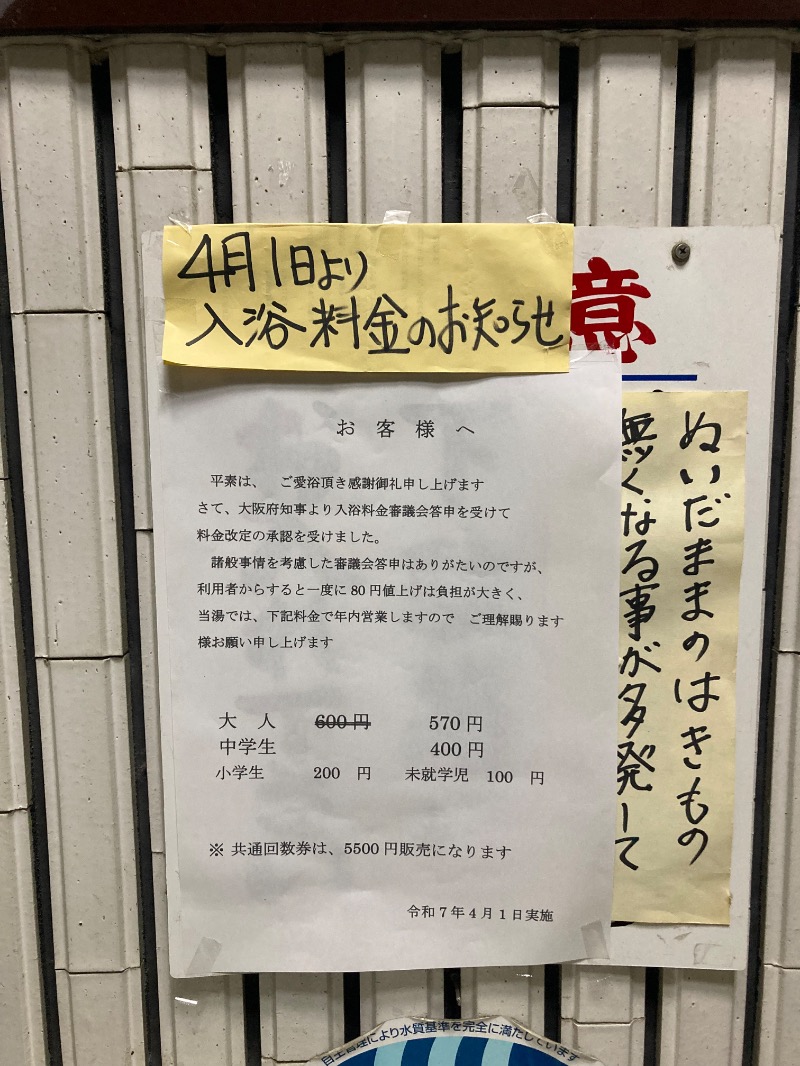 4月1日より
入浴料金のお知らせ
意
お客様へ
平素は、 ご愛浴頂き感謝御礼申し上げます
さて、大阪府知事より入浴料金審議会答申を受けて
料金改定の承認を受けました。
諸般事情を考慮した審議会答申はありがたいのですが、
利用者からすると一度に80円値上げは負担が大きく、
当湯では、下記料金で年内営業しますので ご理解賜ります
様お願い申し上げます
大 人 600円 570円
中学生 400円
小学生 200 円 未就学児 100 円
※ 共通回数券は、5500円販売になります
令和7年4月1日実施
ぬいだままのはきもの
無くなる事が多発して
自主管理により水質基準を完全に満たしています